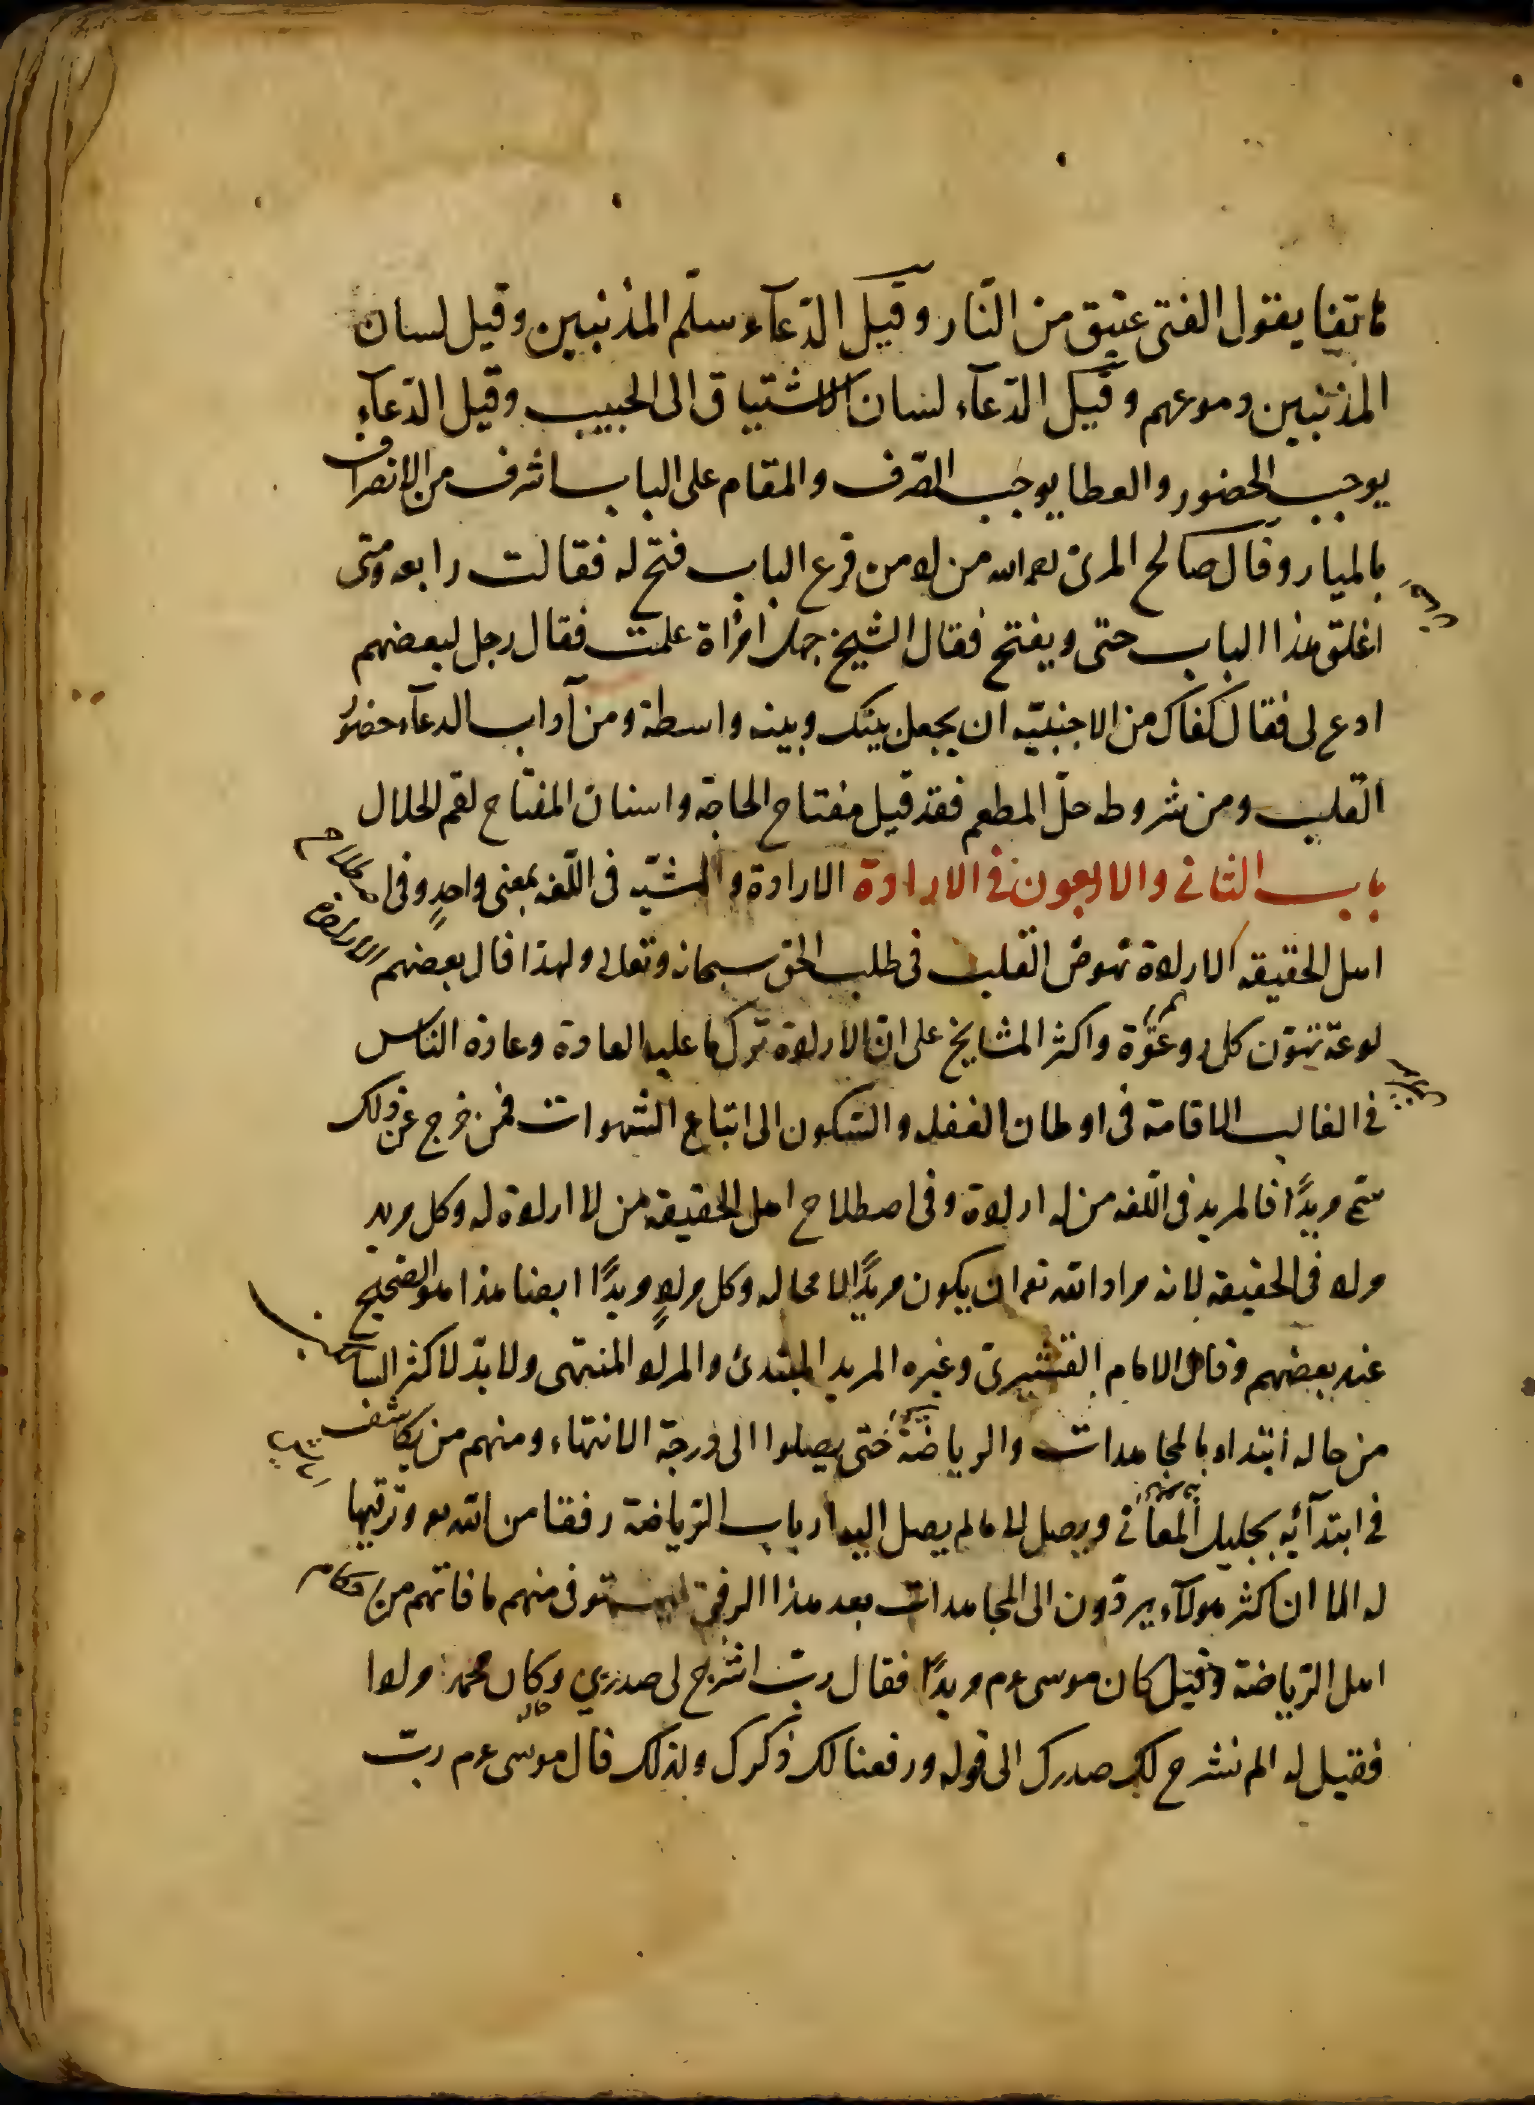 هاتفا يقول الفتى عتيق من النار وقيل الدعآء سلّم المذنبين وقيل لسان
المذنبين دموعهم وقيل الدعآء لسان الاشتياق الى الحبيب وقيل الدعآء
يوجب الحضور والعطا يوجب الصّرف والمقام على الباب اشرف من الانصراف
بالمبار وقال صالح المرى رحمه الله من ادمن قرع الباب فتح له فقالت رابعه ومتى
اغلق هذا الباب حتى ويفتح فقال الشيخ جهل امرأة علمت فقال رجل لبعضهم
ادع لى فقال كفاك من الاجنبيّه ان يجعل بينك وبينه واسطة ومن آداب الدعآء حضور
القلب ومن شروطه حلّ المطعم فقد قيل مفتاح الحاجة واسنان المفتاح لقم الحلال
باب الثانى والاربعون فى الارادة الارادة والمشيّه فى اللّغه بمعنى واحدٍ وفى اصطلاح
اهل الحقيقه الارادة نهوض القلب فى طلب الحق سبحانه وتعالى ولهذا قال بعضهم الارادة
لوعة تهوّن كل روعة واكثر المشايخ على ان الارادة ترك ما عليه العادة وعادة الناس
فى الغالب الاقامة فى اوطان الغفله والسّكون الى اتباع الشهوات فمن خرج عن ذلك
سمّى مريدًا فالمريد فى اللّغه من له ارادة وفى اصطلاح اهل الحقيقه من لا ارادة له وكل مريد
مراد فى الحقيقه لانه مراد الله تع ان يكون مريدًا لا محاله وكل مرادٍ مريدًا ايضا هذا هو الصّحيح
عند بعضهم وقال الامام القشيرىّ وغيره المريد المبتدئ والمراد المنتهى ولا بدّ لاكثر السالكين
من حاله ابتداء بالمجاهدات والرياضة حتى يصلوا الى درجة الانتهاء ومنهم من يكاشف
فى ابتدآئه بجليل المعانى ويصل الى ما لم يصل اليه ارباب الرّياضة رفقا من الله
له الا ان اكثر هولآء يردّون الى المجاهدات بعد هذا الرفق ليستوفى منهم ما فاتهم من احكام
اهل الرّياضة وقيل كان موسى عم مريدًا فقال ربّ اشرح لى صدرى وكان محمد مرادا
فقيل له الم نشرح لك صدرك الى قوله ورفعنا لك ذكرك ولذلك قال موسى عم ربّ